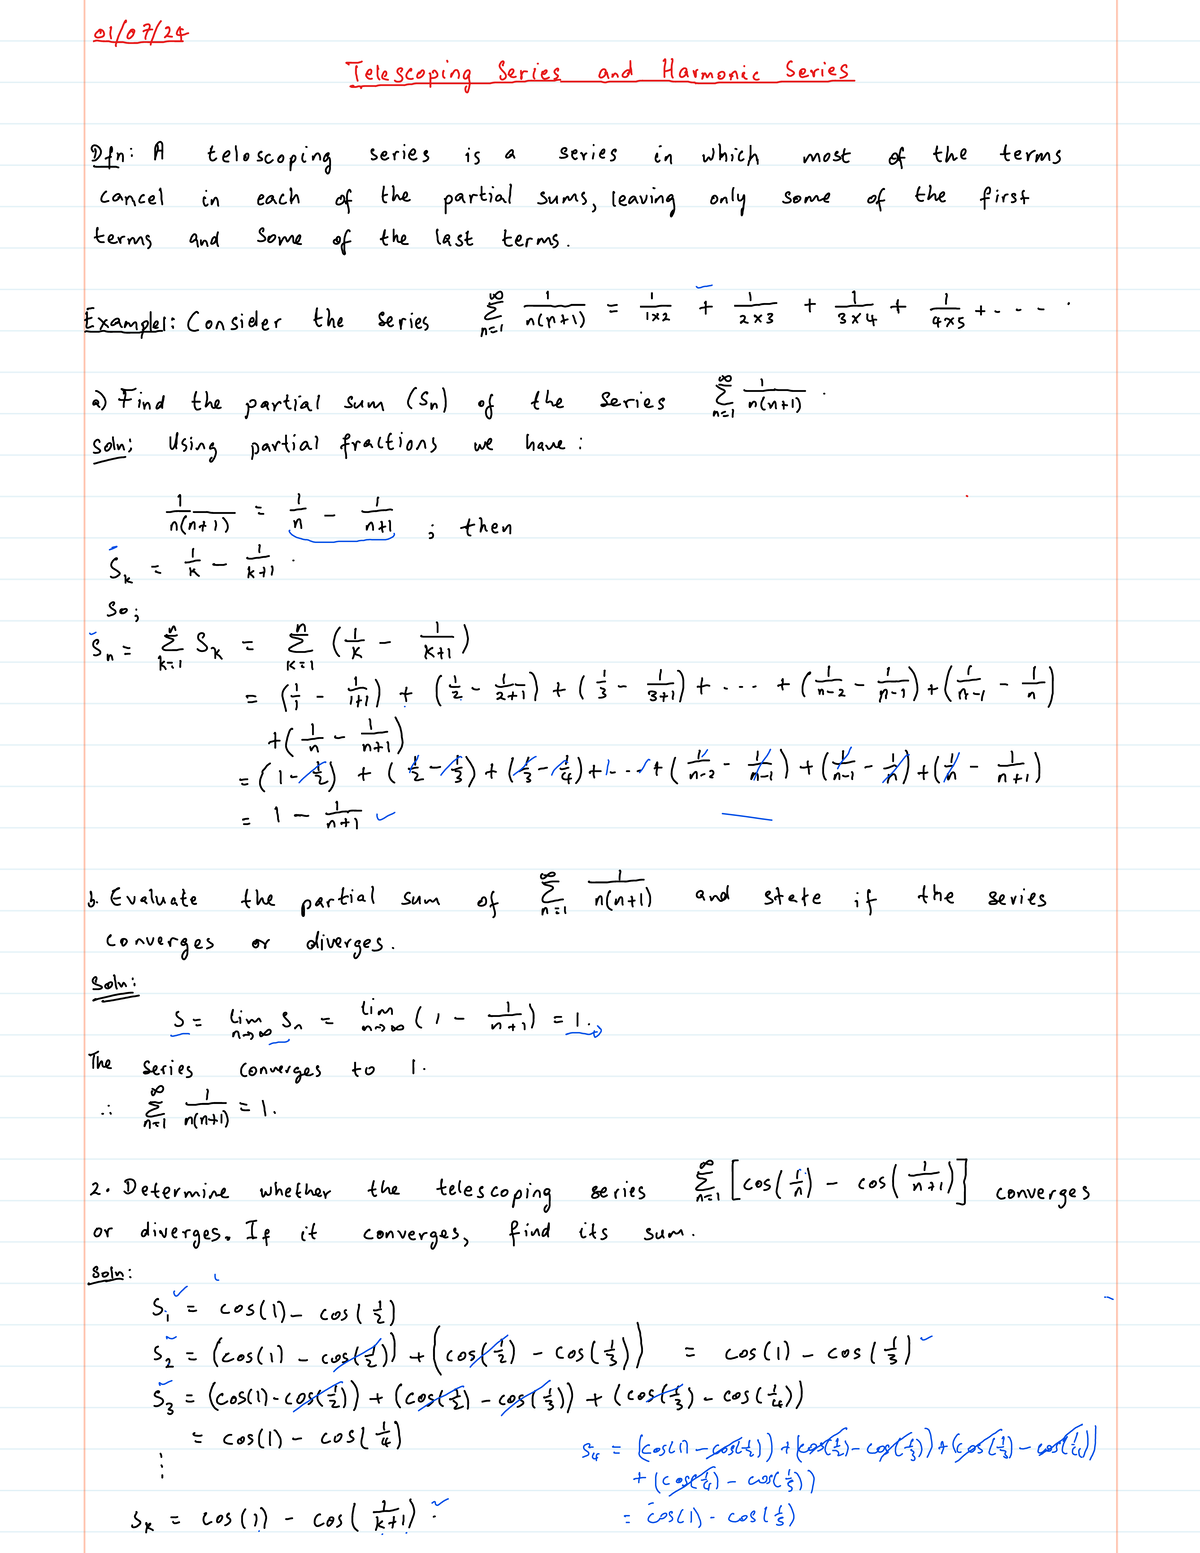 01/07/24
Telescoping Series and Harmonic Series
Dfn: A teloscoping series is a series in which most of the terms
cancel in each of the partial sums, leaving only some of the first
terms and some of the last terms.
Example1: Consider the series ∑_{n=1}^{∞} 1/(n(n+1)) = 1/(1×2) + 1/(2×3) + 1/(3×4) + 1/(4×5) + - - - .
a) Find the partial sum (Sn) of the series ∑_{n=1}^{∞} 1/(n(n+1)) .
Soln: Using partial fractions we have :
1/(n(n+1)) = 1/n - 1/(n+1) ; then
S_k = 1/k - 1/(k+1) .
So;
S_n = ∑_{k=1}^{n} S_k = ∑_{k=1}^{n} (1/k - 1/(k+1))
= (1/1 - 1/(1+1)) + (1/2 - 1/(2+1)) + (1/3 - 1/(3+1)) + ... + (1/(n-2) - 1/(n-1)) + (1/(n-1) - 1/n)
+ (1/n - 1/(n+1))
= (1 - 1/2) + (1/2 - 1/3) + (1/3 - 1/4) + ... + (1/(n-2) - 1/(n-1)) + (1/(n-1) - 1/n) + (1/n - 1/(n+1))
= 1 - 1/(n+1) ✓
b. Evaluate the partial sum of ∑_{n=1}^{∞} 1/(n(n+1)) and state if the series
converges or diverges.
Soln:
S = lim_{n→∞} S_n = lim_{n→∞} (1 - 1/(n+1)) = 1.
The series converges to 1.
∴ ∑_{n=1}^{∞} 1/(n(n+1)) = 1.
2. Determine whether the telescoping series ∑_{n=1}^{∞} [cos(1/n) - cos(1/(n+1))] converges
or diverges. If it converges, find its sum.
Soln:
S_1 = cos(1) - cos(1/2)
S_2 = (cos(1) - cos(1/2)) + (cos(1/2) - cos(1/3)) = cos(1) - cos(1/3)
S_3 = (cos(1) - cos(1/2)) + (cos(1/2) - cos(1/3)) + (cos(1/3) - cos(1/4))
= cos(1) - cos(1/4)
⋮
S_k = cos(1) - cos(1/(k+1))
S_4 = (cos(1) - cos(1/2)) + (cos(1/2) - cos(1/3)) + (cos(1/3) - cos(1/4))
+ (cos(1/4) - cos(1/5))
= cos(1) - cos(1/5)